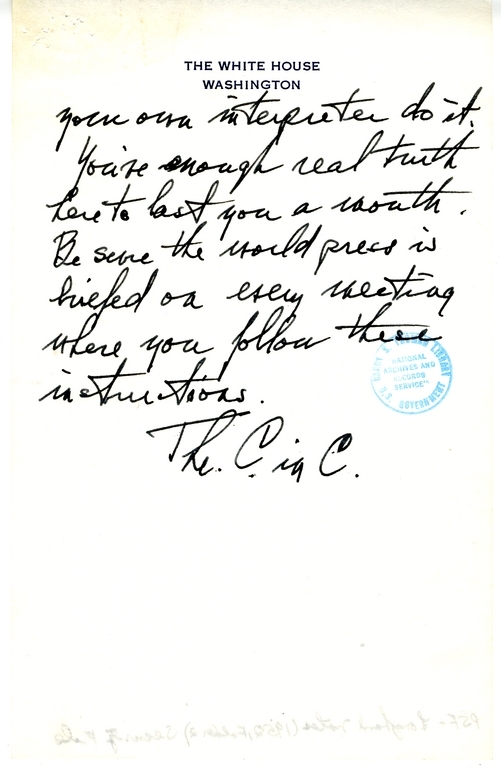 THE WHITE HOUSE
WASHINGTON
your own interpreter do it.
You've enough real truth
here to last you a month.
Be sure the world press is
briefed on every meeting
where you follow these
instructions.
The. C. in C.
HARRY S. TRUMAN LIBRARY
"NATIONAL
ARCHIVES AND
RECORDS
SERVICE"
U.S. GOVERNMENT